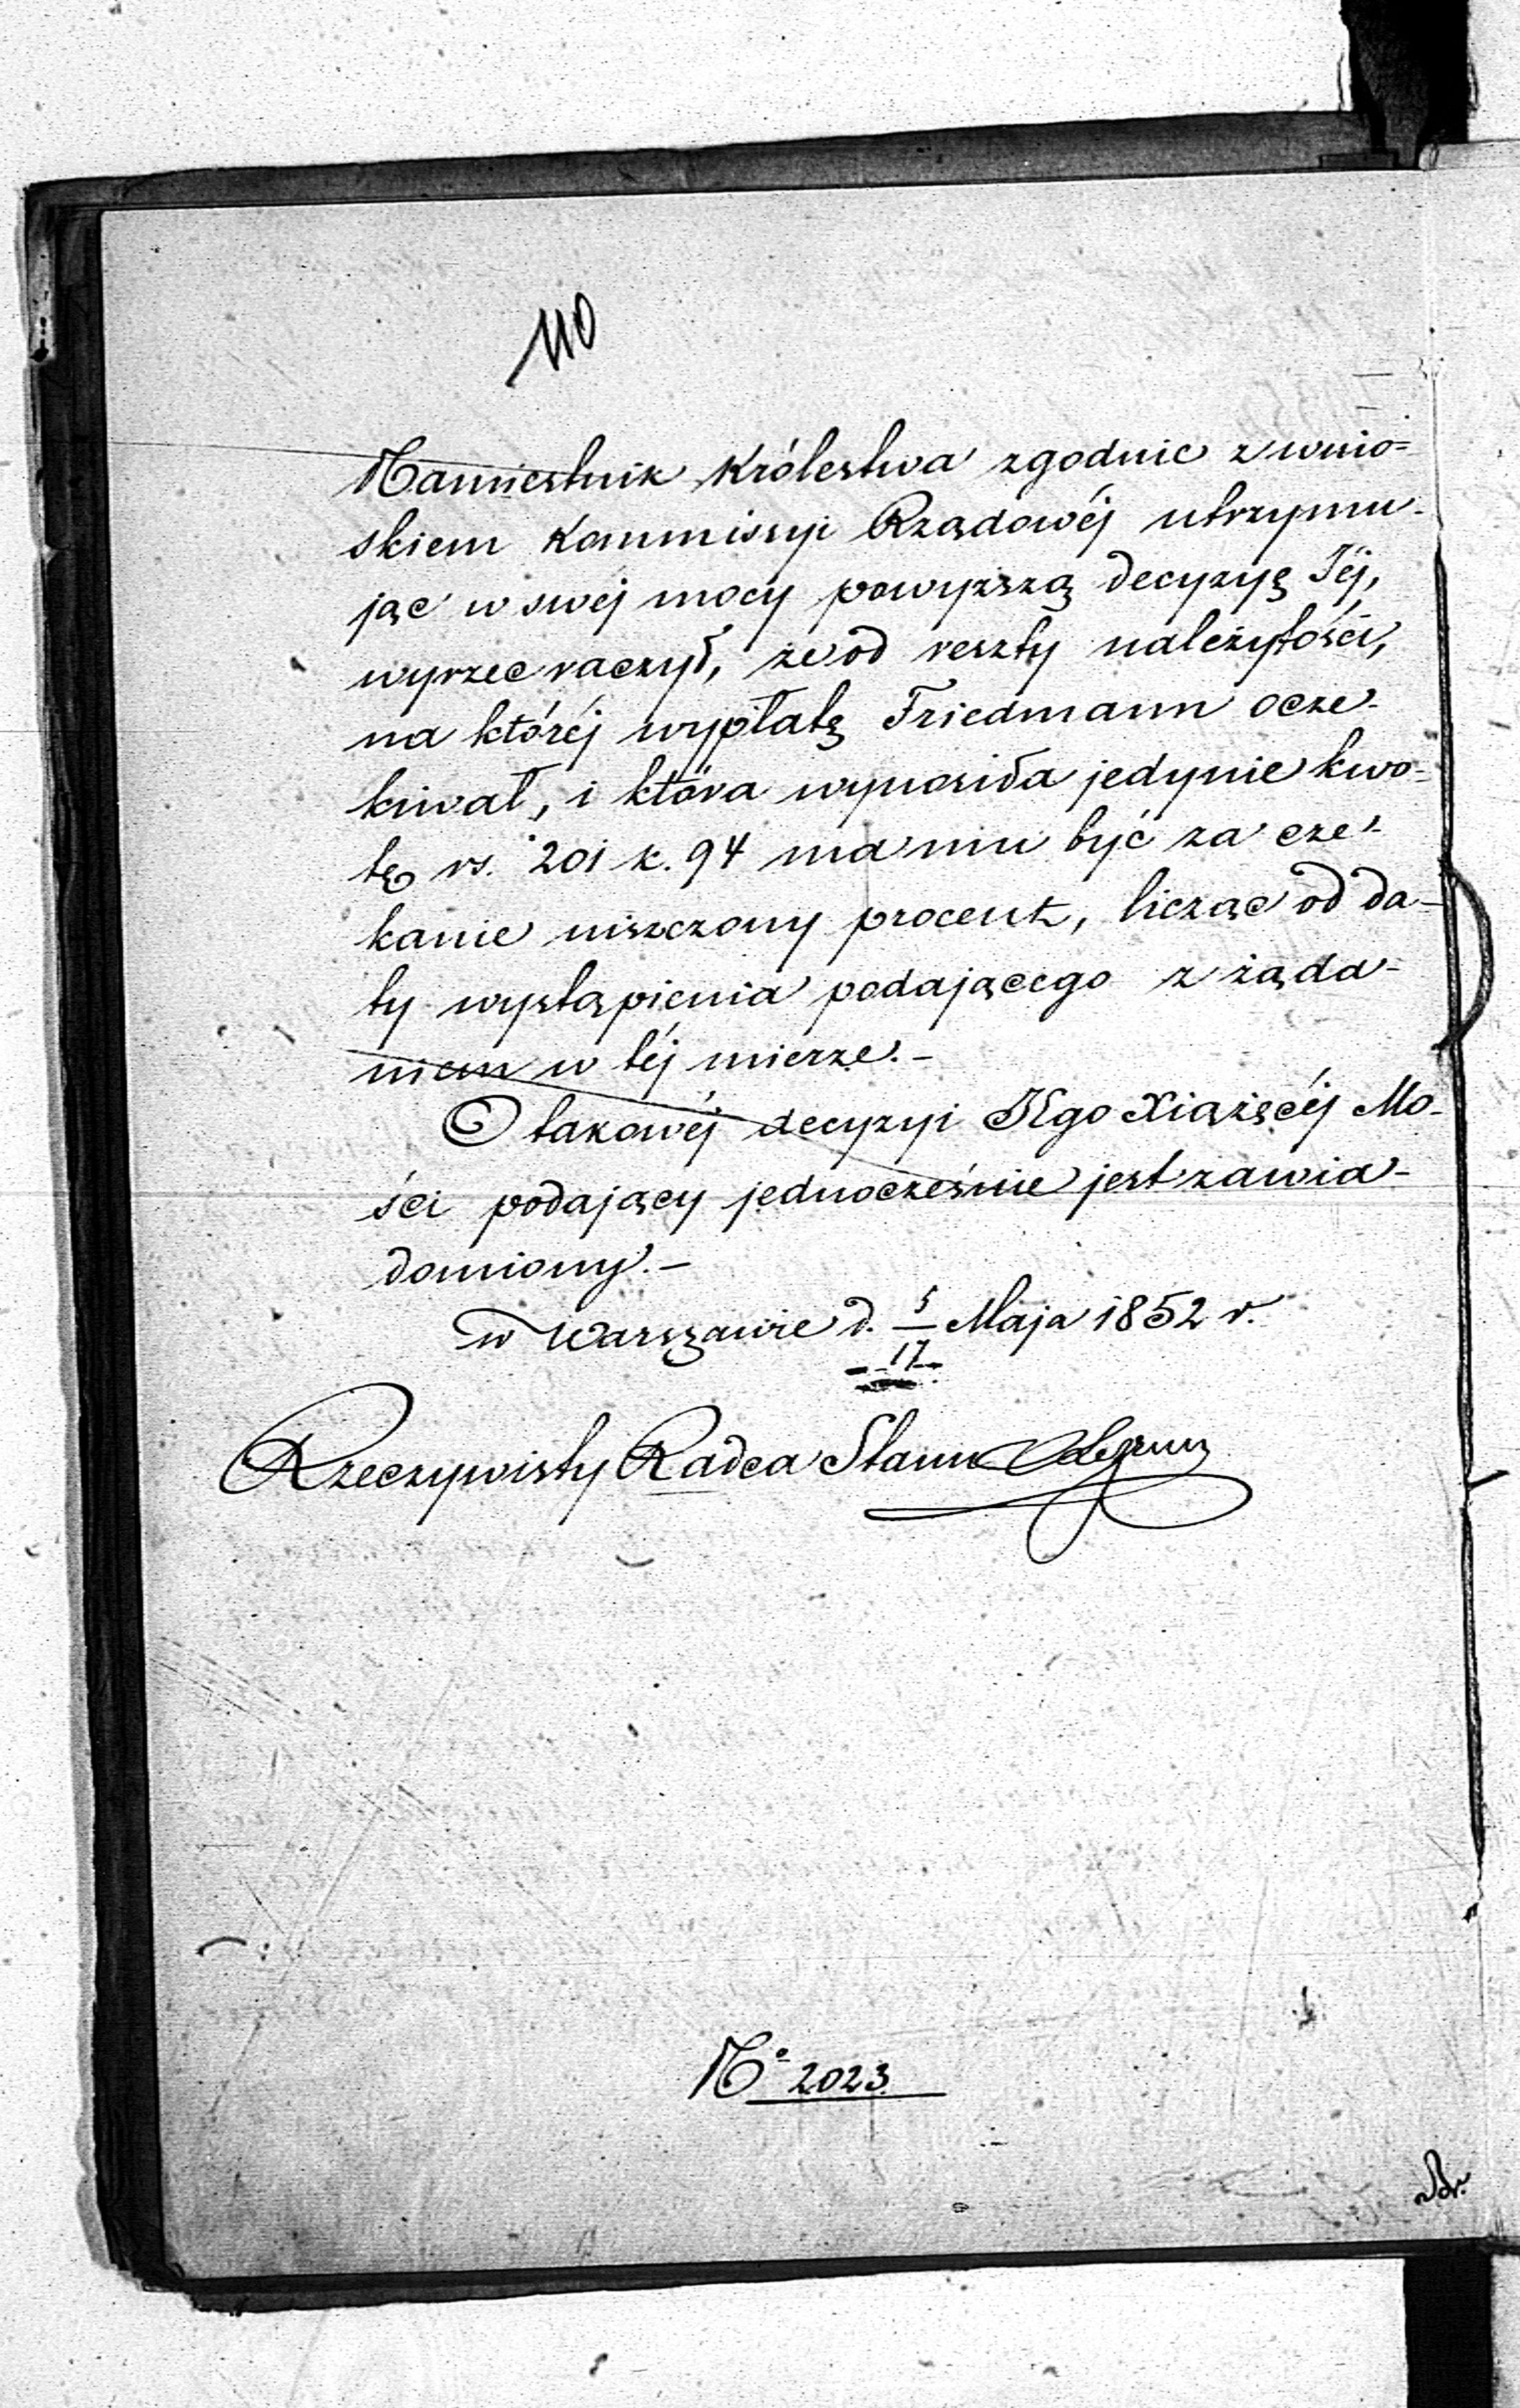 110
Namiestnik Królestwa zgodnie z wnio=
skiem Kommissyi Rządowéj utrzymu-
jąc w swéj mocy powyższą decyzyę Jéj,
wyrzec raczył, że od reszty należytości,
na któréj wypłatę Friedmann ocze-
kiwał, i która wynosiła jedynie kwo-
tę rs. 201 k. 94 ma mu być za cze-
kanie uiszczony procent, licząc od da-
ty wystąpienia podającego z żąda-
niem w téj mierze.-
O takowéj decyzyi JEgo Xiążęcéj Mo-
ści podający jednocześnie jest zawia-
domiony.-
w Warszawie d. 5/17 Maja 1852 r.
Rzeczywisty Radca Stanu
No 2023